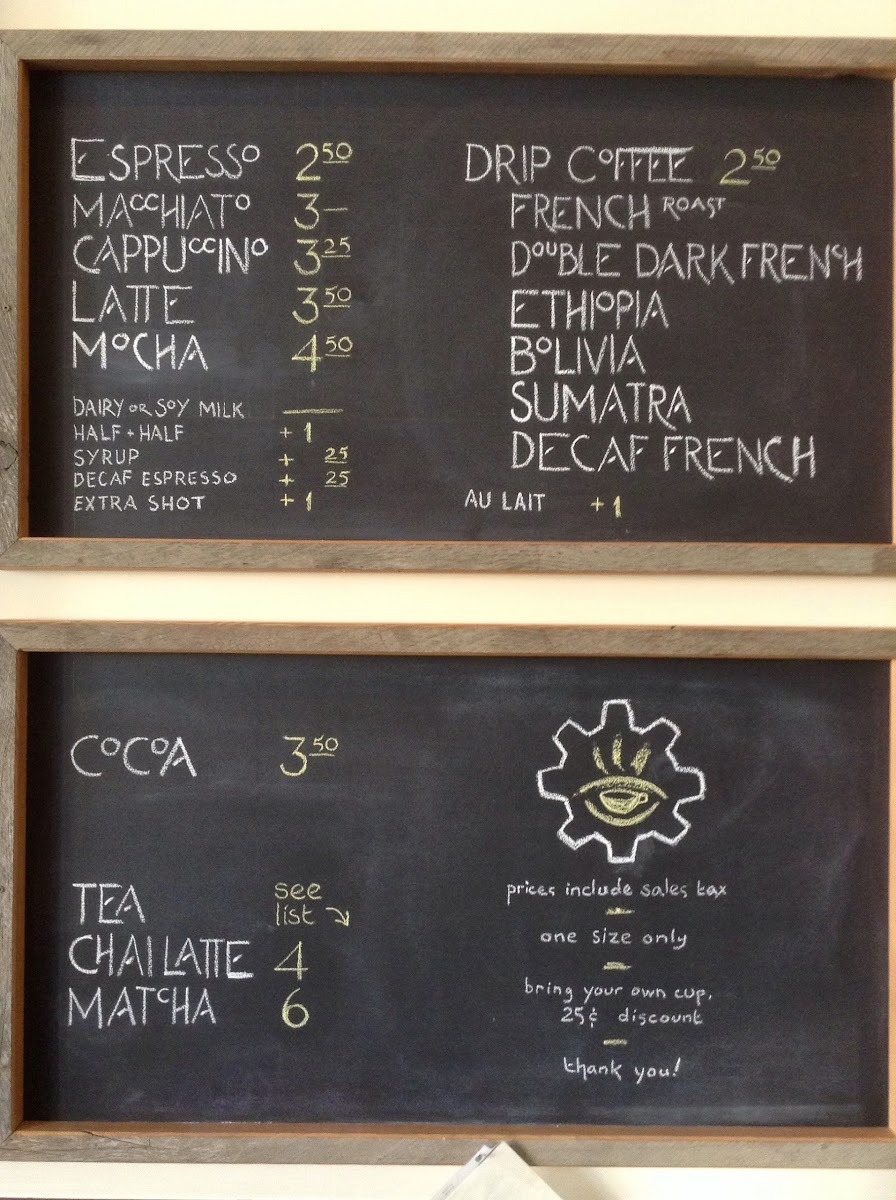 ESPRESSO 2 50
MACCHIATO 3—
CAPPUCCINO 3 25
LATTE 3 50
MOCHA 4 50
DAIRY OR SOY MILK —
HALF + HALF + 1
SYRUP + 25
DECAF ESPRESSO + 25
EXTRA SHOT + 1
DRIP COFFEE 2 50
FRENCH ROAST
DOUBLE DARK FRENCH
ETHIOPIA
BOLIVIA
SUMATRA
DECAF FRENCH
AU LAIT + 1
COCOA 3 50
TEA see
list ↘
CHAI LATTE 4
MATCHA 6
prices include sales tax
one size only
bring your own cup,
25¢ discount
thank you!